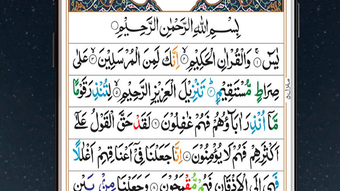 بِسْمِ اللّٰهِ الرَّحْمٰنِ الرَّحِيْمِ
يٰسٓ ۚ وَالْقُرْاٰنِ الْحَكِيْمِ ۙ اِنَّكَ لَمِنَ الْمُرْسَلِيْنَ ۙ عَلٰى
صِرَاطٍ مُّسْتَقِيْمٍ ؕ تَنْزِيْلَ الْعَزِيْزِ الرَّحِيْمِ ۙ لِتُنْذِرَ قَوْمًا
مَّاۤ اُنْذِرَ اٰبَآؤُهُمْ فَهُمْ غٰفِلُوْنَ لَقَدْ حَقَّ الْقَوْلُ عَلٰۤى
اَكْثَرِهِمْ فَهُمْ لَا يُؤْمِنُوْنَ اِنَّا جَعَلْنَا فِيْۤ اَعْنَاقِهِمْ اَغْلٰلًا
فَهِيَ اِلَى الْاَذْقَانِ فَهُمْ مُّقْمَحُوْنَ وَجَعَلْنَا مِنْۢ بَيْنِ